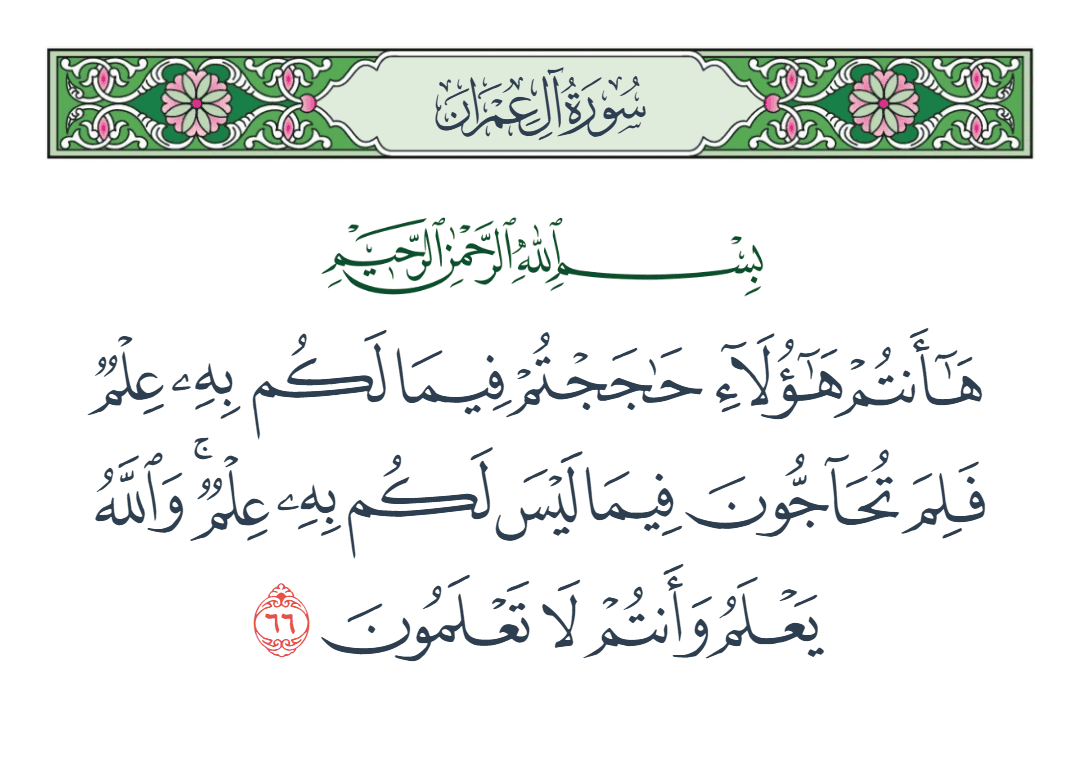 سُورَةُ آلِ عِمْرَانَ
بِسْمِ ٱللَّهِ ٱلرَّحْمَٰنِ ٱلرَّحِيمِ
هَٰٓأَنتُمْ هَٰٓؤُلَآءِ حَٰجَجْتُمْ فِيمَا لَكُم بِهِۦ عِلْمٌ
فَلِمَ تُحَآجُّونَ فِيمَا لَيْسَ لَكُم بِهِۦ عِلْمٌ ۚ وَٱللَّهُ
يَعْلَمُ وَأَنتُمْ لَا تَعْلَمُونَ ٦٦